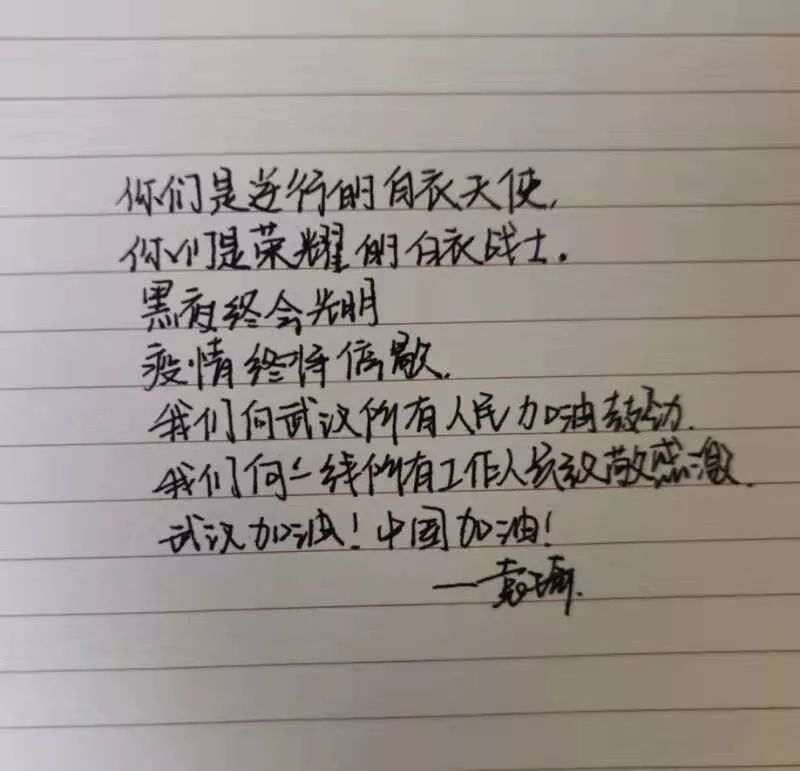 你们是逆行的白衣天使,
你们是荣耀的白衣战士.
黑夜终会光明
疫情终将停歇.
我们向武汉所有人民加油鼓劲.
我们向一线所有工作人员致敬感激.
武汉加油!中国加油!